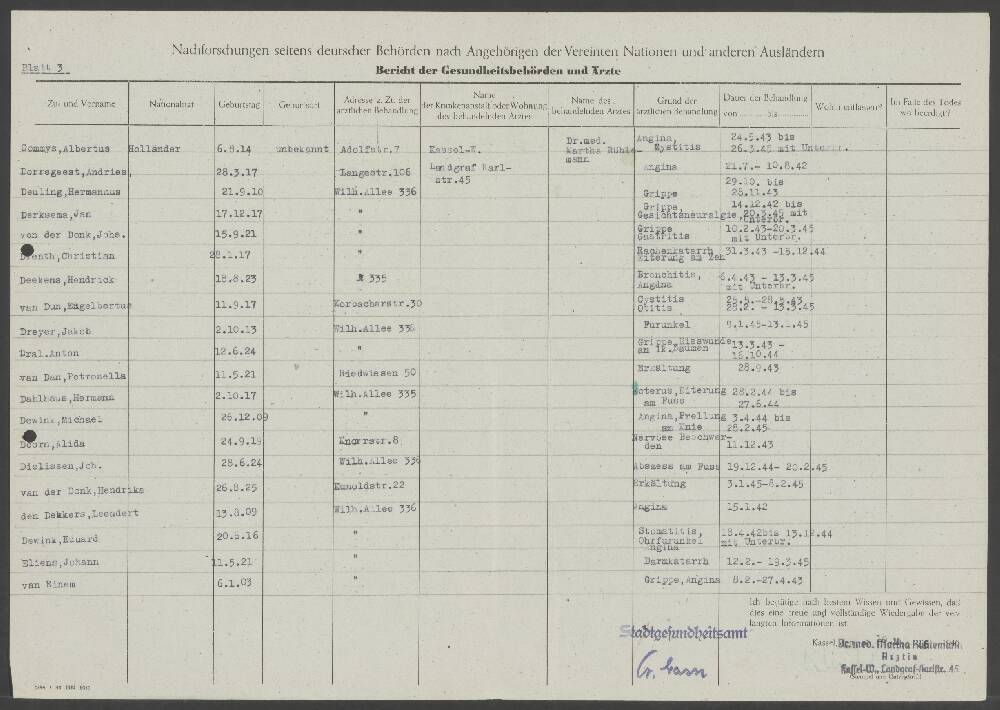 Nachforschungen seitens deutscher Behörden nach Angehörigen der Vereinten Nationen und anderen Ausländern
Blatt 3
Bericht der Gesundheitsbehörden und Ärzte
Zu- und Vorname Nationalität Geburtstag Geburtsort Adresse z. Zt. der ärztlichen Behandlung Name der Krankenanstalt oder Wohnung des behandelnden Arztes Name des behandelnden Arztes Grund der ärztlichen Behandlung Dauer der Behandlung von bis Wohin entlassen? Im Falle des Todes wo beerdigt?
Commys,Albertus Holländer 6.8.14 unbekannt Adolfstr.7 Kassel-W. Dr.med. Martha Rühle- mann Angina, Zystitis 24.5.43 bis 26.3.45 mit Unterbr.
Dorregeest,Andries 28.3.17 Langestr.106 Landgraf Karl- str.45 Angina 21.7.- 10.8.42
Deuling,Hermannus 21.9.10 Wilh.Allee 336 Grippe 29.10. bis 28.11.43
Derksema,Jan 17.12.17 " Grippe, Gesichtsneuralgie 14.12.42 bis 20.3.45 mit Unterbr.
von der Donk,Johs. 15.9.21 " Grippe Gastritis 10.2.43-20.3.45 mit Unterbr.
Drenth,Christian 28.1.17 " Rachenkatarrh Eiterung am Zeh 31.3.43 -15.12.44
Deekens,Hendrick 18.8.23 " 335 Bronchitis, Angina 6.4.43 - 13.3.45 mit Unterbr.
van Dun,Engelbertus 11.9.17 Korbacherstr.30 Cystitis Otitis 25.5.-28.5.43 28.2. - 13.3.45
Dreyer,Jakob 2.10.13 Wilh.Allee 336 Furunkel 9.1.45-13.1.45
Dral.Anton 12.6.24 " Grippe,Risswunde am lk.Daumen 13.3.43 - 16.10.44
van Dan,Petronella 11.5.21 Riedwiesen 50 Erkältung 28.9.43
Dahlhaus,Hermann 2.10.17 Wilh.Allee 335 Icterus,Eiterung am Fuss 28.2.44 bis 27.6.44
Dewink,Michael 26.12.09 " Angina,Prellung am Knie 3.4.44 bis 28.2.45
Doorn,Alida 24.9.19 Knorrstr.8 Nervöse Beschwer- den 11.12.43
Dielissen,Joh. 28.6.24 Wilh.Allee 336 Abszess am Fuss 19.12.44- 20.2.45
van der Donk,Hendrika 26.8.25 Kunoldstr.22 Erkältung 3.1.45-8.2.45
den Dekkers,Leendert 13.8.09 Wilh.Allee 336 Angina 15.1.42
Dewink,Eduard 20.5.16 " Stomatitis, Ohrfurunkel Angina 18.4.42bis 13.12.44 mit Unterbr.
Eliens,Johann 11.5.21 " Darmkatarrh 12.2.- 19.3.45
van Einem 6.1.03 " Grippe,Angina 8.2.-27.4.43
Ich bestätige nach bestem Wissen und Gewissen, daß
dies eine treue und vollständige Wiedergabe der ver-
langten Informationen ist.
Stadtgesundheitsamt
Kassel, Dr. med. Martha Rühlemann
Ärztin
Kassel-W., Landgraf-Karlstr. 45
(Stempel und Unterschrift)